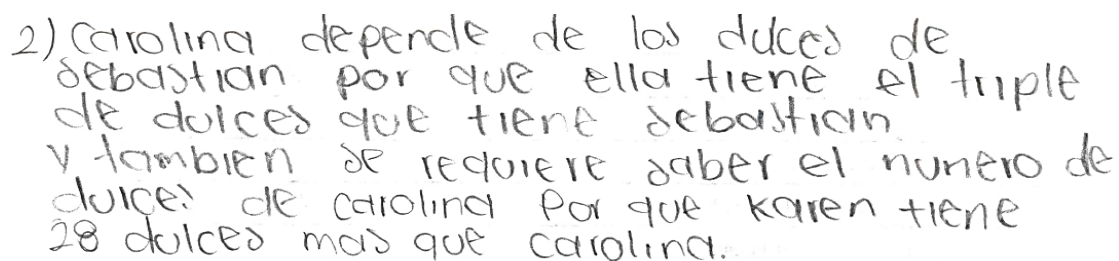 2) Carolina depende de los dulces de
sebastian por que ella tiene el triple
de dulces que tiene sebastian
y tambien se requiere saber el nunero de
dulces de carolina Por que karen tiene
28 dulces mas que carolina.